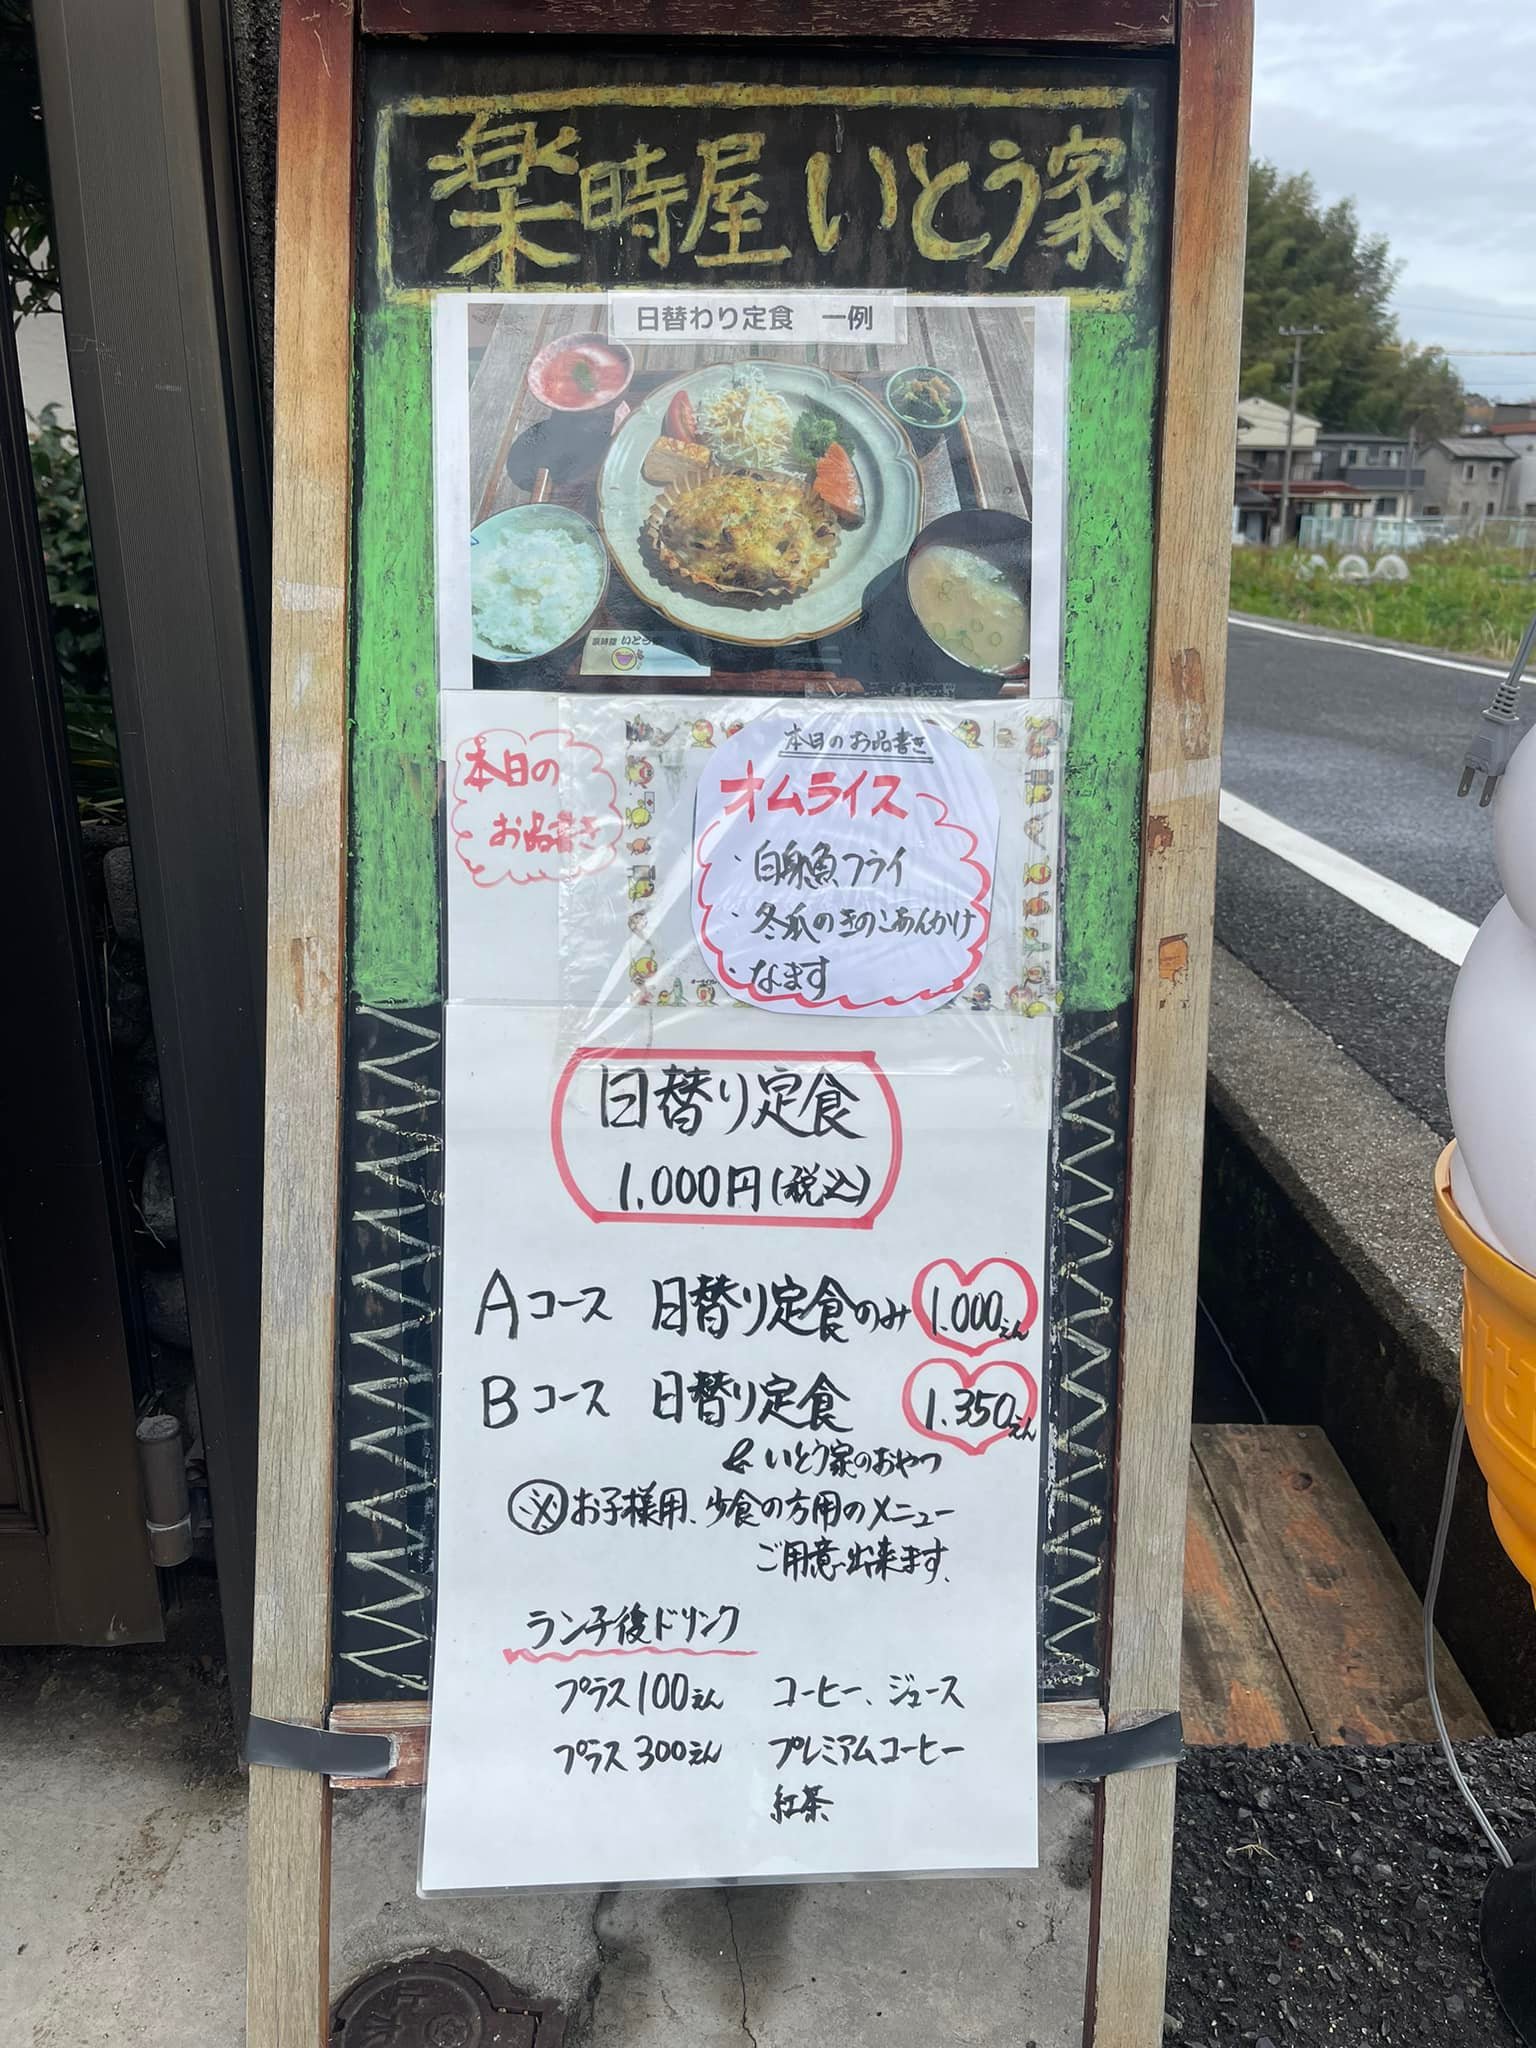 楽時屋 いとう家
日替わり定食 一例
楽時屋 いとう家
本日の
お品書き
本日のお品書き
オムライス
・白身魚フライ
・冬瓜のきのこあんかけ
・なます
日替り定食
1.000円(税込)
Aコース 日替り定食のみ 1.000えん
Bコース 日替り定食 1.350えん
& いとう家のおやつ
※お子様用、少食の方用のメニュー
ご用意出来ます。
ランチ後ドリンク
プラス100えん コーヒー、ジュース
プラス300えん プレミアムコーヒー
紅茶